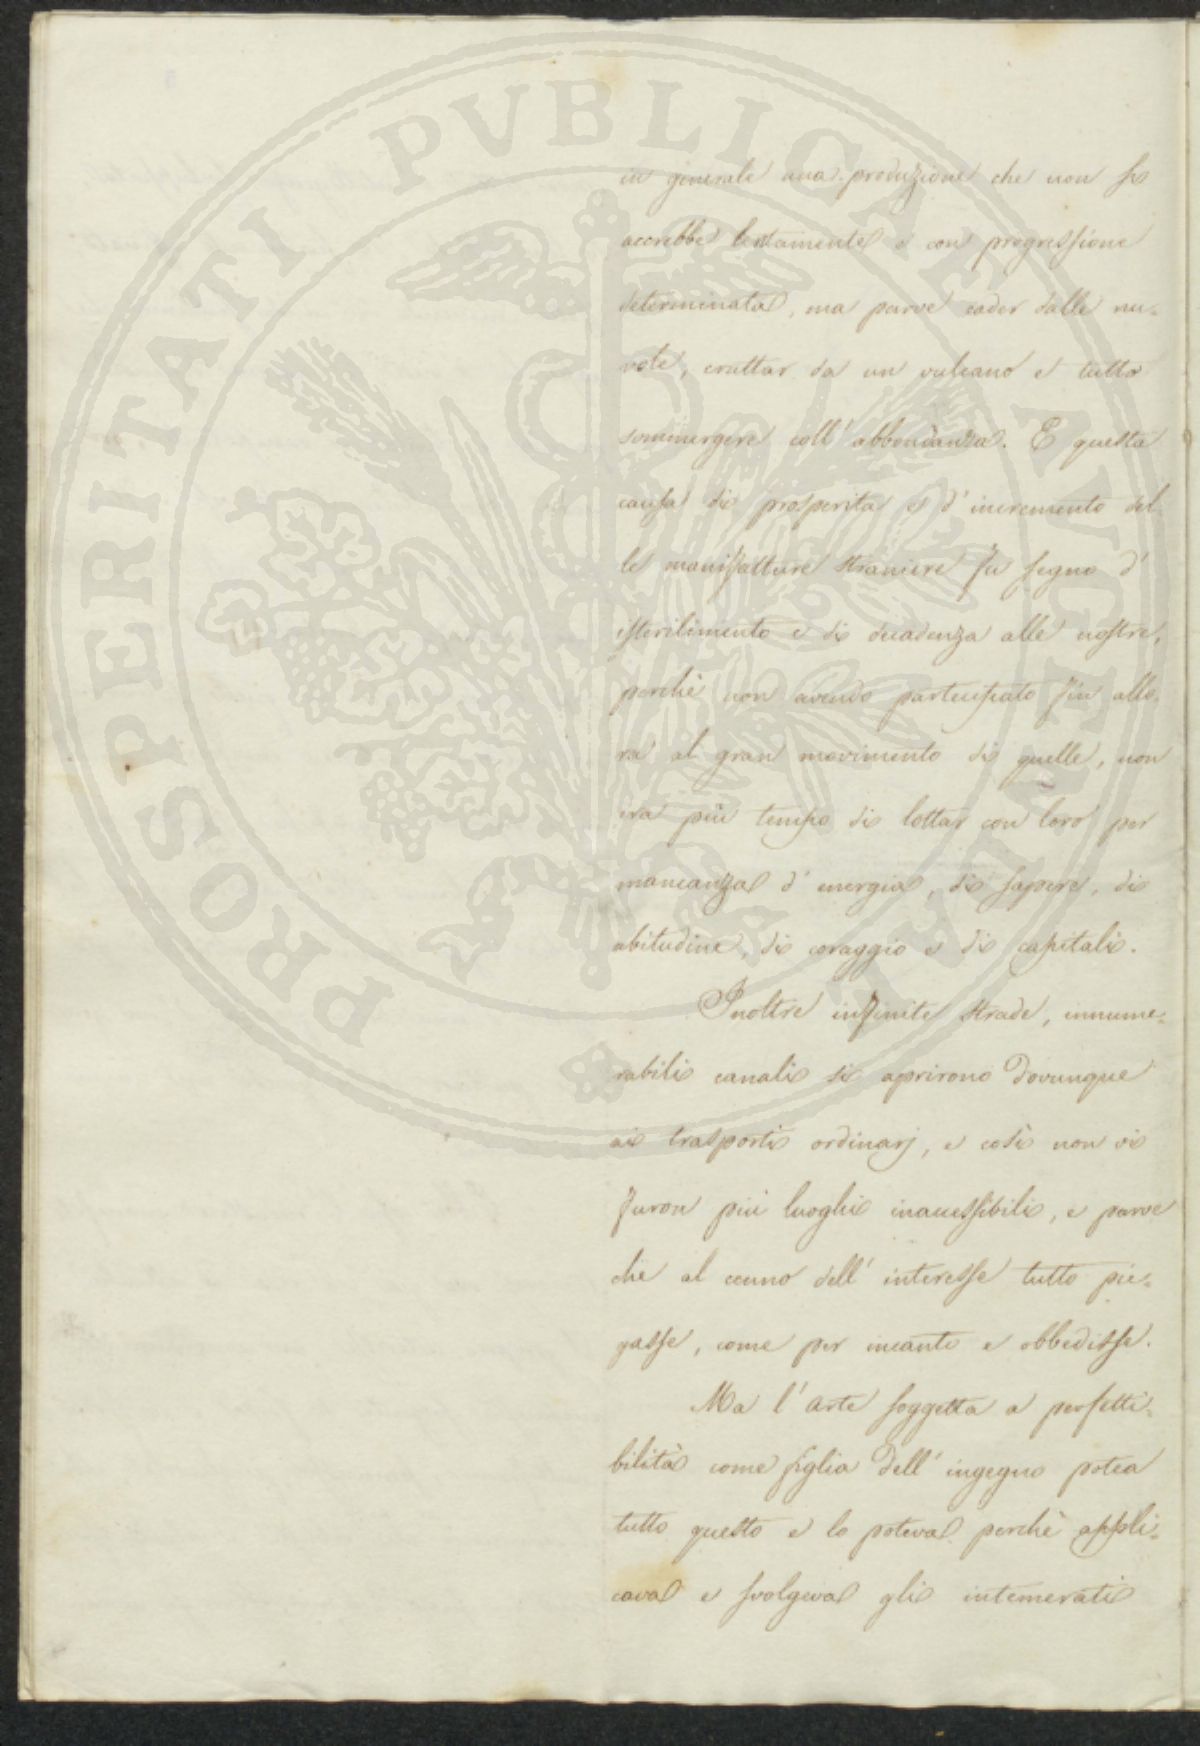 in generale una produzione che non si
accrebbe lentamente e con progressione
determinata, ma parve cader dalle nu=
vole, eruttar da un vulcano e tutto
sommergere coll' abbondanza. E questa
causa di prosperita e d' incremento del=
le manifatture straniere fu segno d'
isterilimento e di decadenza alle nostre,
perchè non avendo partecipato fin allo=
ra al gran movimento di quelle, non
era più tempo di lottar con loro per
mancanza d' energia, di sapere, di
abitudine, di coraggio e di capitali.
Inoltre infinite strade, innume=
rabili canali si aprirono dovunque
ai trasporti ordinarj, e così non vi
furon più luoghi inaccessibili, e parve
che al cenno dell' interesse tutto pie=
gasse, come per incanto e obbedisse.
Ma l' arte soggetta a perfetti=
bilità come figlia dell' ingegno potea
tutto questo e lo poteva perchè appli=
cava e svolgeva gli intemerati
PROSPERITATI PVBLICAE AVGENDAE